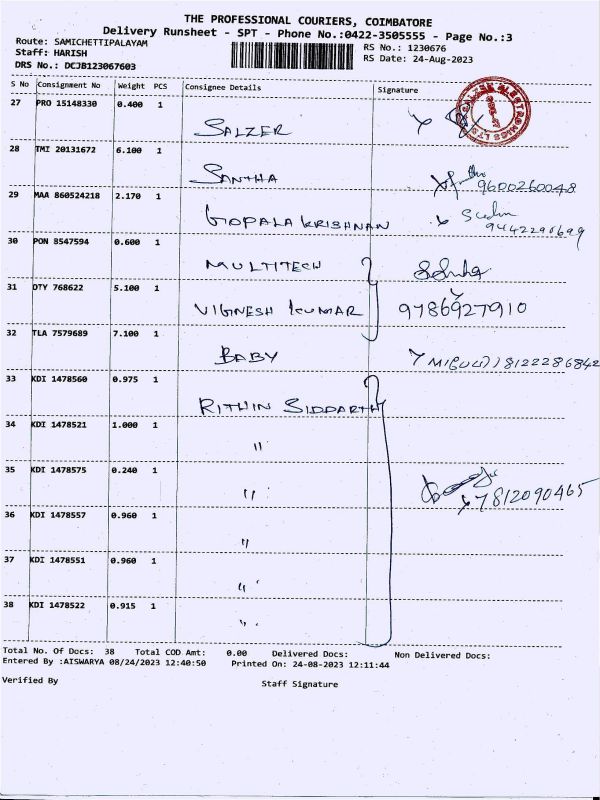 THE PROFESSIONAL COURIERS, COIMBATORE
Delivery Runsheet - SPT - Phone No.:0422-3505555 - Page No.:3
Route: SAMICHETTIPALAYAM
RS No.: 1230676
Staff: HARISH
RS Date: 24-Aug-2023
DRS No.: DCJB123067603
S No Consignment No Weight PCS Consignee Details Signature
27 PRO 15148330 0.400 1
SALZER
28 TMI 20131672 6.100 1
SANTHA 9600260048
29 MAA 860524218 2.170 1
GOPALA KRISHNAN
9442290699
30 PON 8547594 0.600 1
MULTITECH
31 DTY 768622 5.100 1
VIGNESH KUMAR 9786927910
32 TLA 7579689 7.100 1
BABY 8122286842
33 KDI 1478560 0.975 1
RITHIN SIDDARTH
34 KDI 1478521 1.000 1
"
35 KDI 1478575 0.240 1
" 7812090465
36 KDI 1478557 0.960 1
"
37 KDI 1478551 0.960 1
"
38 KDI 1478522 0.915 1
"
Total No. Of Docs: 38 Total COD Amt: 0.00 Delivered Docs: Non Delivered Docs:
Entered By :AISWARYA 08/24/2023 12:40:50 Printed On: 24-08-2023 12:11:44
Verified By Staff Signature